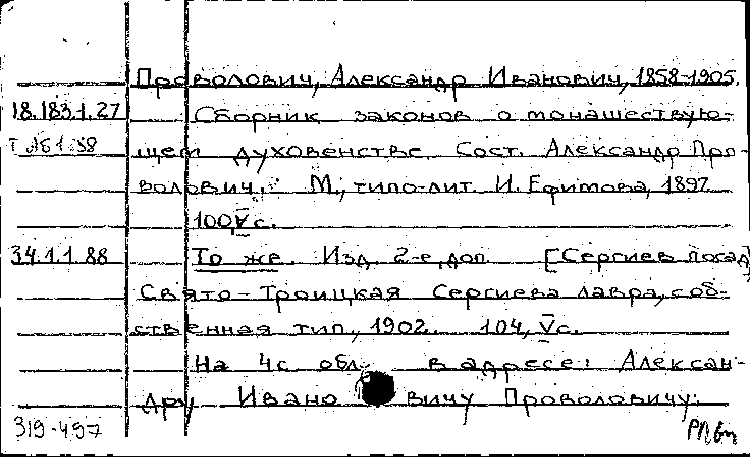 Проволович, Александр Иванович, 1858-1905.
18.183.1.27 Сборник законов о монашествую-
щем духовенстве. Сост. Александр Про-
волович. М., типо-лит. И. Ефимова, 1897.
100, V с.
34.1.1.88 То же. Изд. 2-е, доп. [Сергиев посад]
Свято-Троицкая Сергиева лавра, соб-
ственная тип., 1902. 104, V с.
На 4 с. обл. в адресе: Алексан-
дру Ивановичу Проволовичу.
319-497